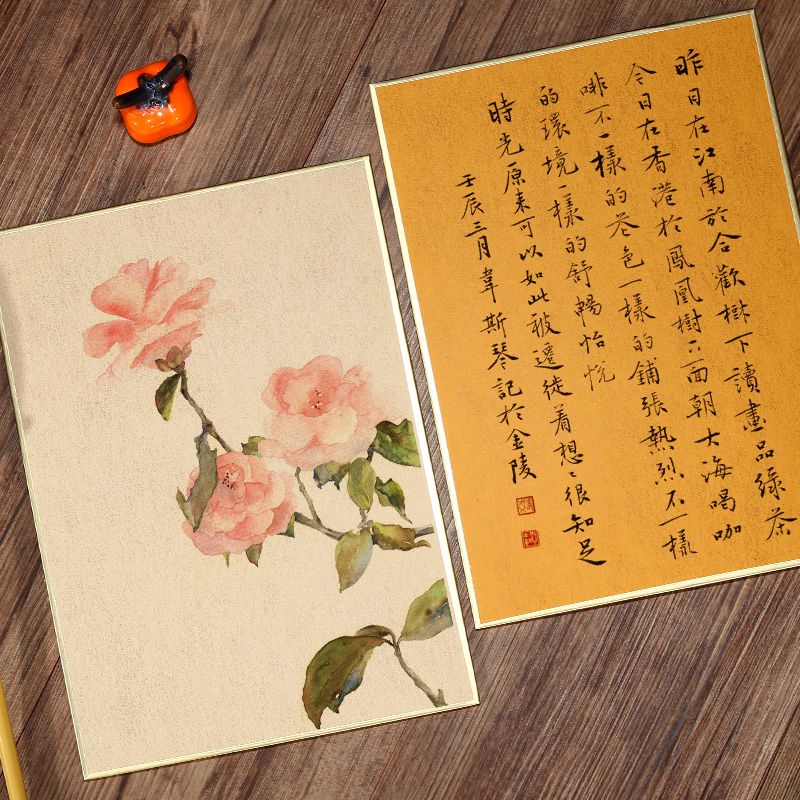 昨日在江南於合歡樹下讀畫品綠茶
今日在香港於鳳凰樹下面朝大海喝咖
啡不一樣的花色一樣的鋪張熱烈不一樣
的環境一樣的舒暢怡悅
時光原來可以如此被遷徙着想想很知足
壬辰三月韋斯琴記於金陵